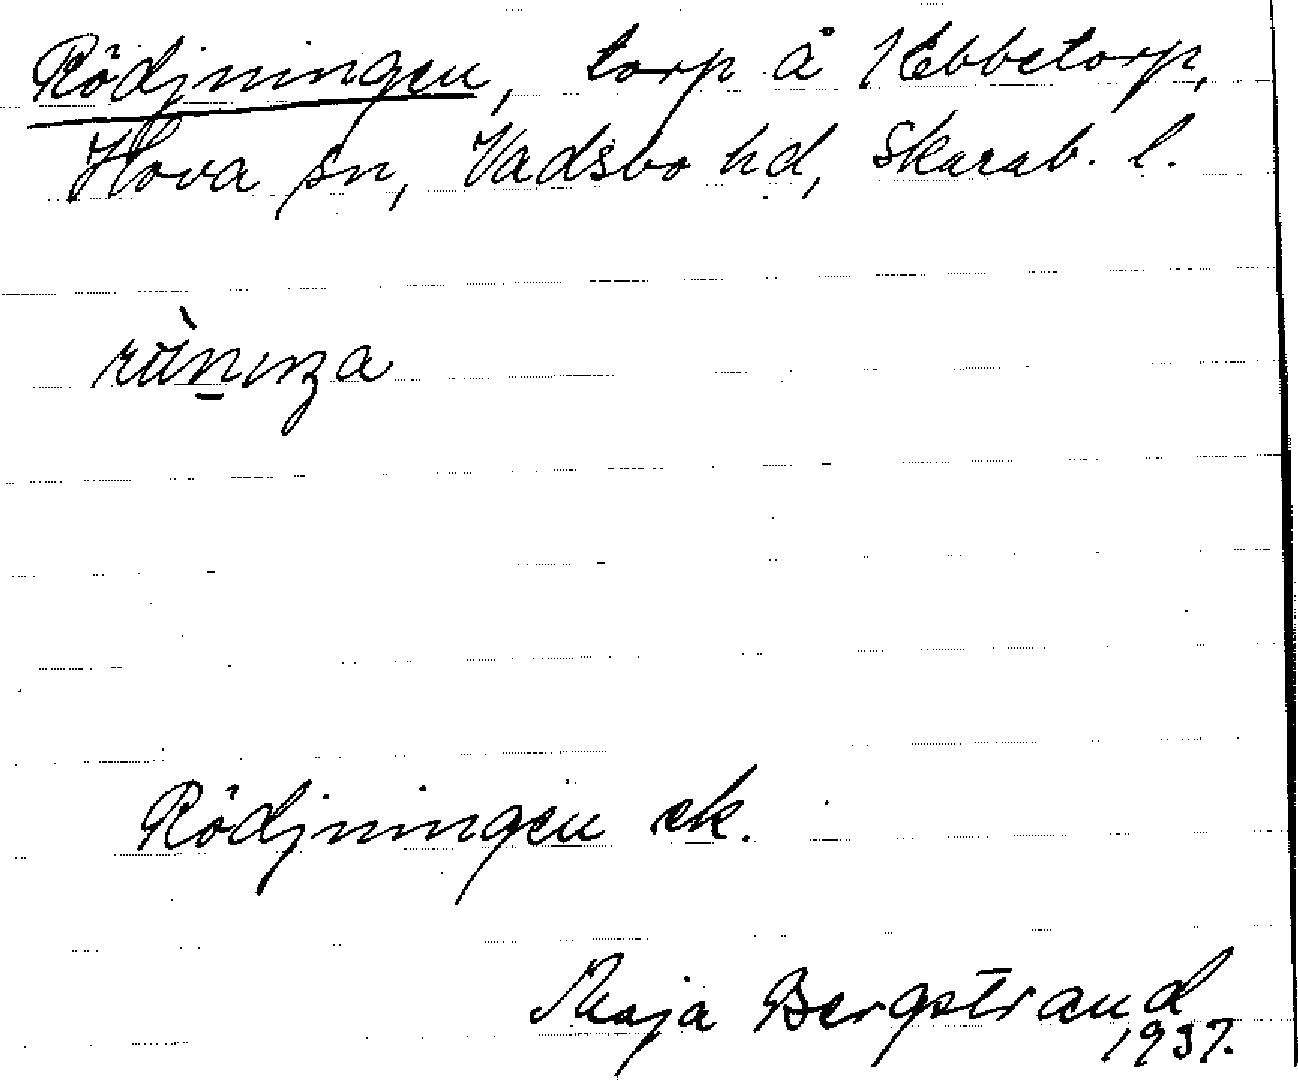 Rödjningen, torp å 1 Ebbetorp,
Hova sn, Vadsbo hd, Skarab. l.
Rödjningen ek.
Maja Bergstrand
1937.